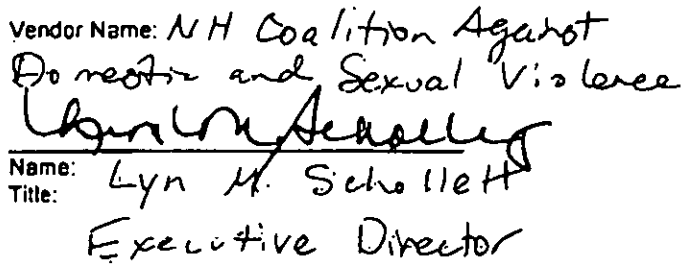 Vendor Name: NH Coalition Against
Domestic and Sexual Violence
Name: Lyn M. Schollett
Title:
Executive Director